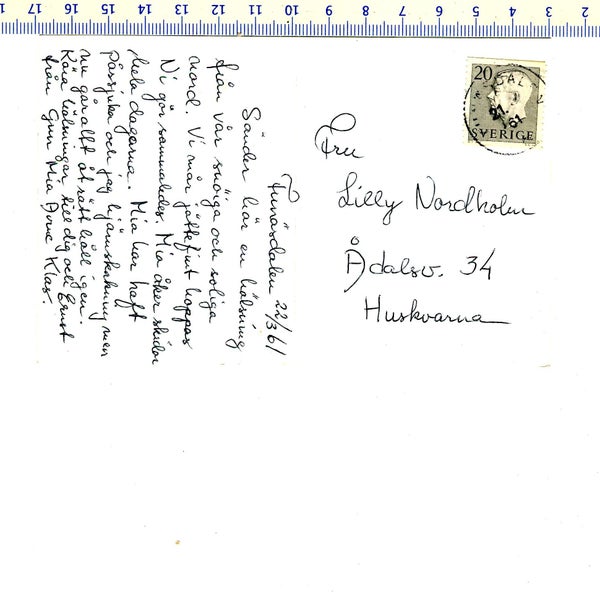 17 16 15 14 13 12 11 10 9 8 7 6 5 4 3 2
Funäsdalen 22/3 61
Sänder här en hälsning
från vår snöiga och soliga
nord. Vi mår jättefint hoppas
Ni gör sammaledes. Mia åker skidor
hela dagarna. Mia har haft
påssjuka och jag hjärnskakning men
nu går allt åt rätt håll igen.
Kära hälsningar till dig och Ernst
från Gun Mia Arne Klas.
20
SVERIGE
Fru
Lilly Nordholm
Ådalsv. 34
Huskvarna